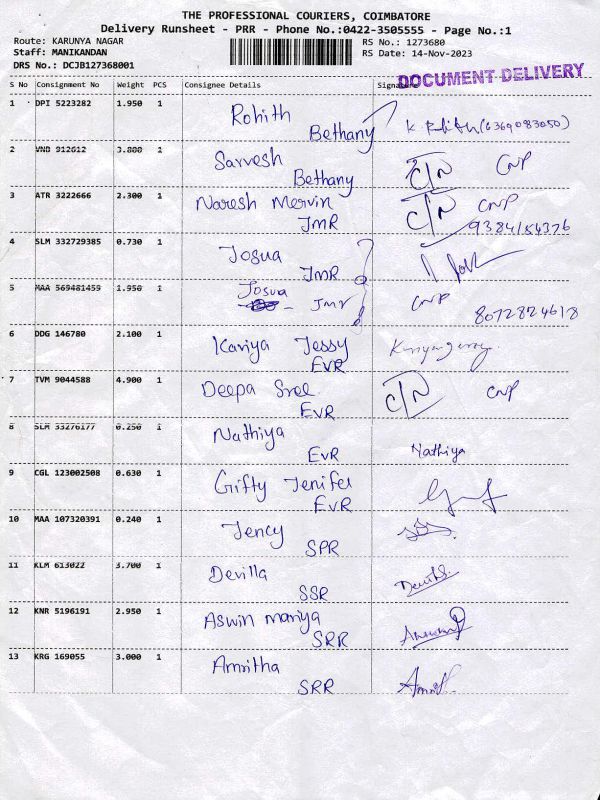 THE PROFESSIONAL COURIERS, COIMBATORE
Delivery Runsheet - PRR - Phone No.:0422-3505555 - Page No.:1
Route: KARUNYA NAGAR
RS No.: 1273680
Staff: MANIKANDAN
RS Date: 14-Nov-2023
DRS No.: DCJB127368001
DOCUMENT DELIVERY
S No Consignment No Weight PCS Consignee Details Signature
1 DPI 5223282 1.950 1 Rohith
Bethany (6369083050)
2 VND 912612 3.800 1 Sarvesh C/N CNP
Bethany
3 ATR 3222666 2.300 1 Naresh Mervin C/N CNP
JMR 9384154376
4 SLM 332729385 0.730 1 Josua
JMR
5 MAA 569481459 1.950 1 Josua CNP
JMR 8072824618
6 DDG 146780 2.100 1 Kariya Jessy
EVR
7 TVM 9044588 4.900 1 Deepa Sree C/N CNP
EVR
8 SLM 33276177 0.250 1 Nathiya
EVR Nathiya
9 CGL 123002508 0.630 1 Gifty Jenifer
EVR
10 MAA 107320391 0.240 1 Jency
SPR
11 KLM 613022 3.700 1 Devilla
SSR
12 KNR 5196191 2.950 1 Aswin mariya
SRR
13 KRG 169055 3.000 1 Amritha
SRR